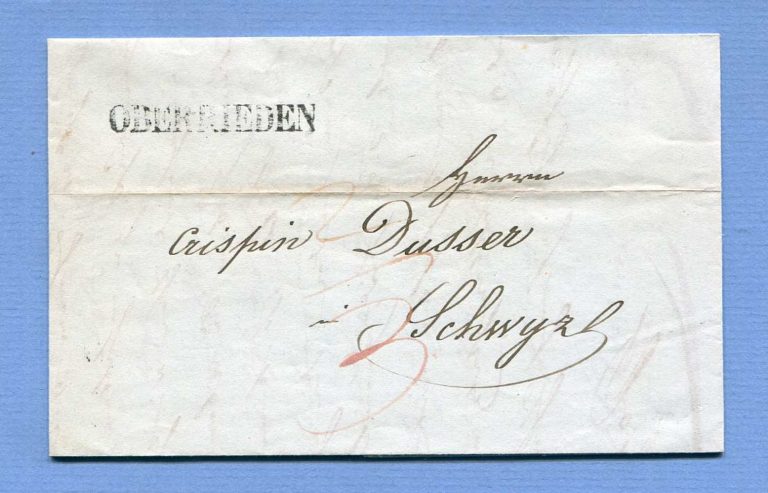 OBERRIEDEN
Herrn
Crispin Dusser
in Schwyz
3